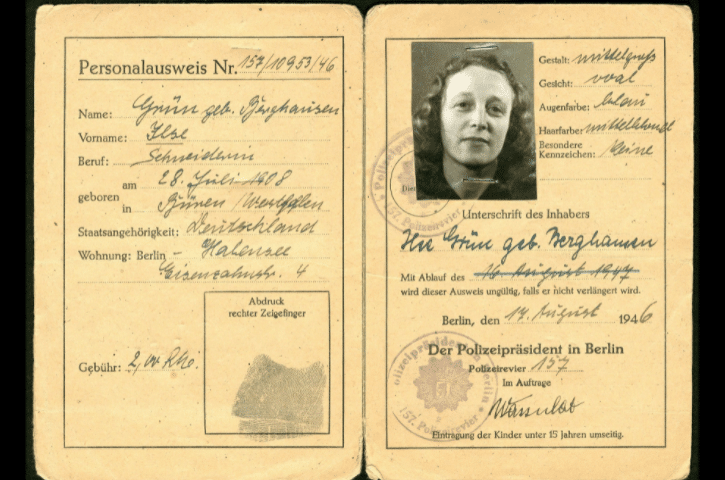 Personalausweis Nr. 157/10953/46
Name: Grün geb. Berghausen
Vorname: Ilse
Beruf: Schneiderin
geboren am 28. Juli 1908
in Büren Westfalen
Staatsangehörigkeit: Deutschland
Wohnung: Berlin - Halensee
Eisenzahnstr. 4
Abdruck
rechter Zeigefinger
Gebühr: 2,00 RM.
Gestalt: mittelgroß
Gesicht: oval
Augenfarbe: blau
Haarfarbe: mittelblond
Besondere
Kennzeichen: Keine
Unterschrift des Inhabers
Ilse Grün geb. Berghausen
Mit Ablauf des 16. August 1947
wird dieser Ausweis ungültig, falls er nicht verlängert wird.
Berlin, den 17. August 1946
Der Polizeipräsident in Berlin
Polizeirevier 157
Im Auftrage
Eintragung der Kinder unter 15 Jahren umseitig.
157. Polizeirevier